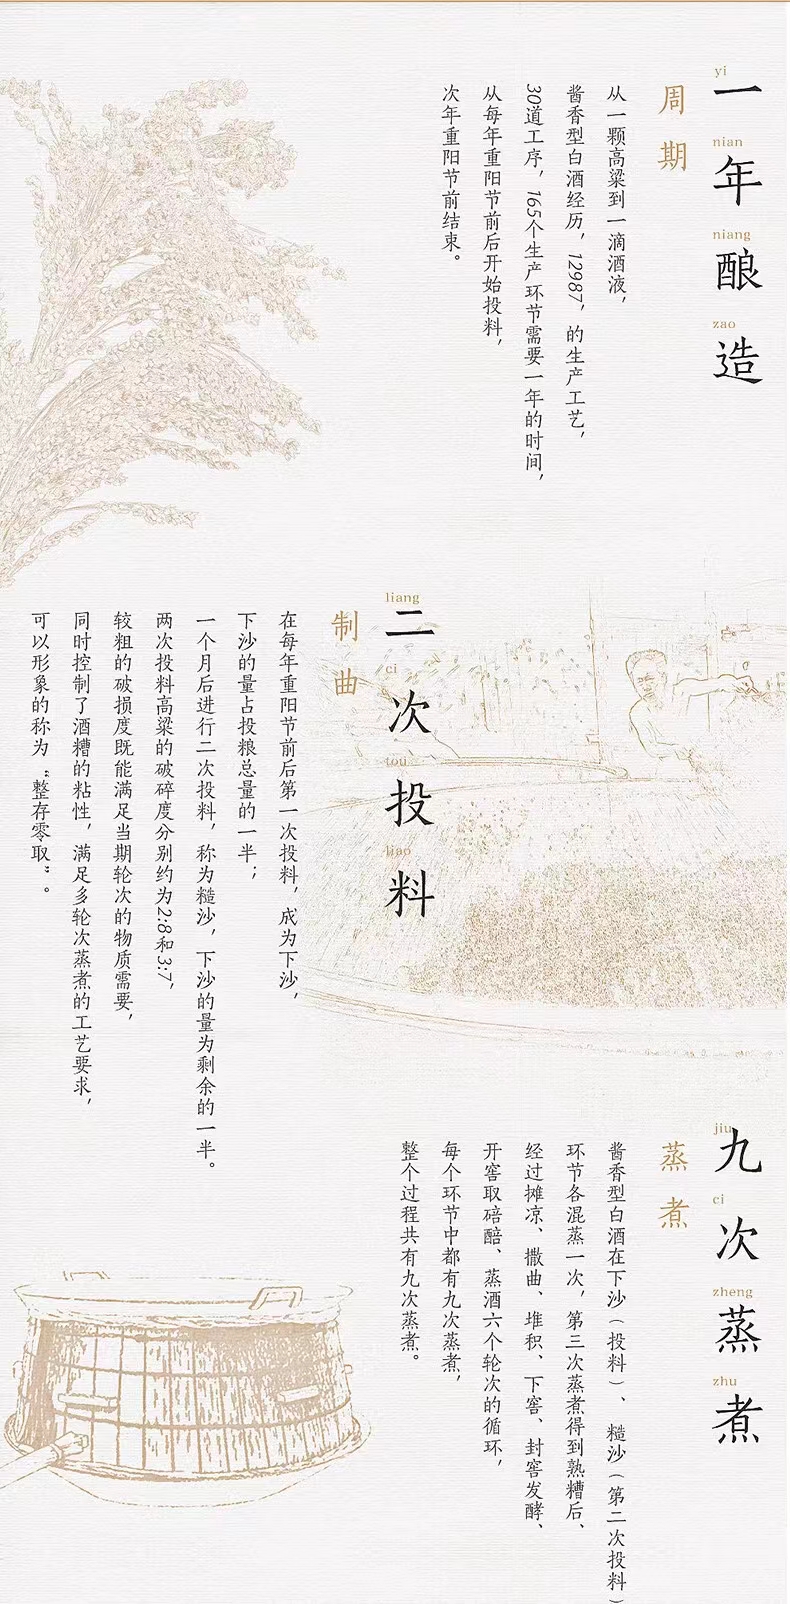 yi nian niang zao
一年酿造
周期
从一颗高粱到一滴酒液，
酱香型白酒经历，12987，的生产工艺，
30道工序，165个生产环节需要一年的时间，
从每年重阳节前后开始投料，
次年重阳节前结束。
liang ci tou liao
二次投料
制曲
在每年重阳节前后第一次投料，成为下沙，
下沙的量占投粮总量的一半；
一个月后进行二次投料，称为糙沙，下沙的量为剩余的一半。
两次投料高粱的破碎度分别约为2:8和3:7，
较粗的破损度既能满足当期轮次的物质需要，
同时控制了酒糟的粘性，满足多轮次蒸煮的工艺要求，
可以形象的称为“整存零取”。
jiu ci zheng zhu
九次蒸煮
蒸煮
酱香型白酒在下沙（投料）、糙沙（第二次投料）
环节各混蒸一次，第三次蒸煮得到熟糟后、
经过摊凉、撒曲、堆积、下窖、封窖发酵、
开窖取碚醅、蒸酒六个轮次的循环，
每个环节中都有九次蒸煮，
整个过程共有九次蒸煮。